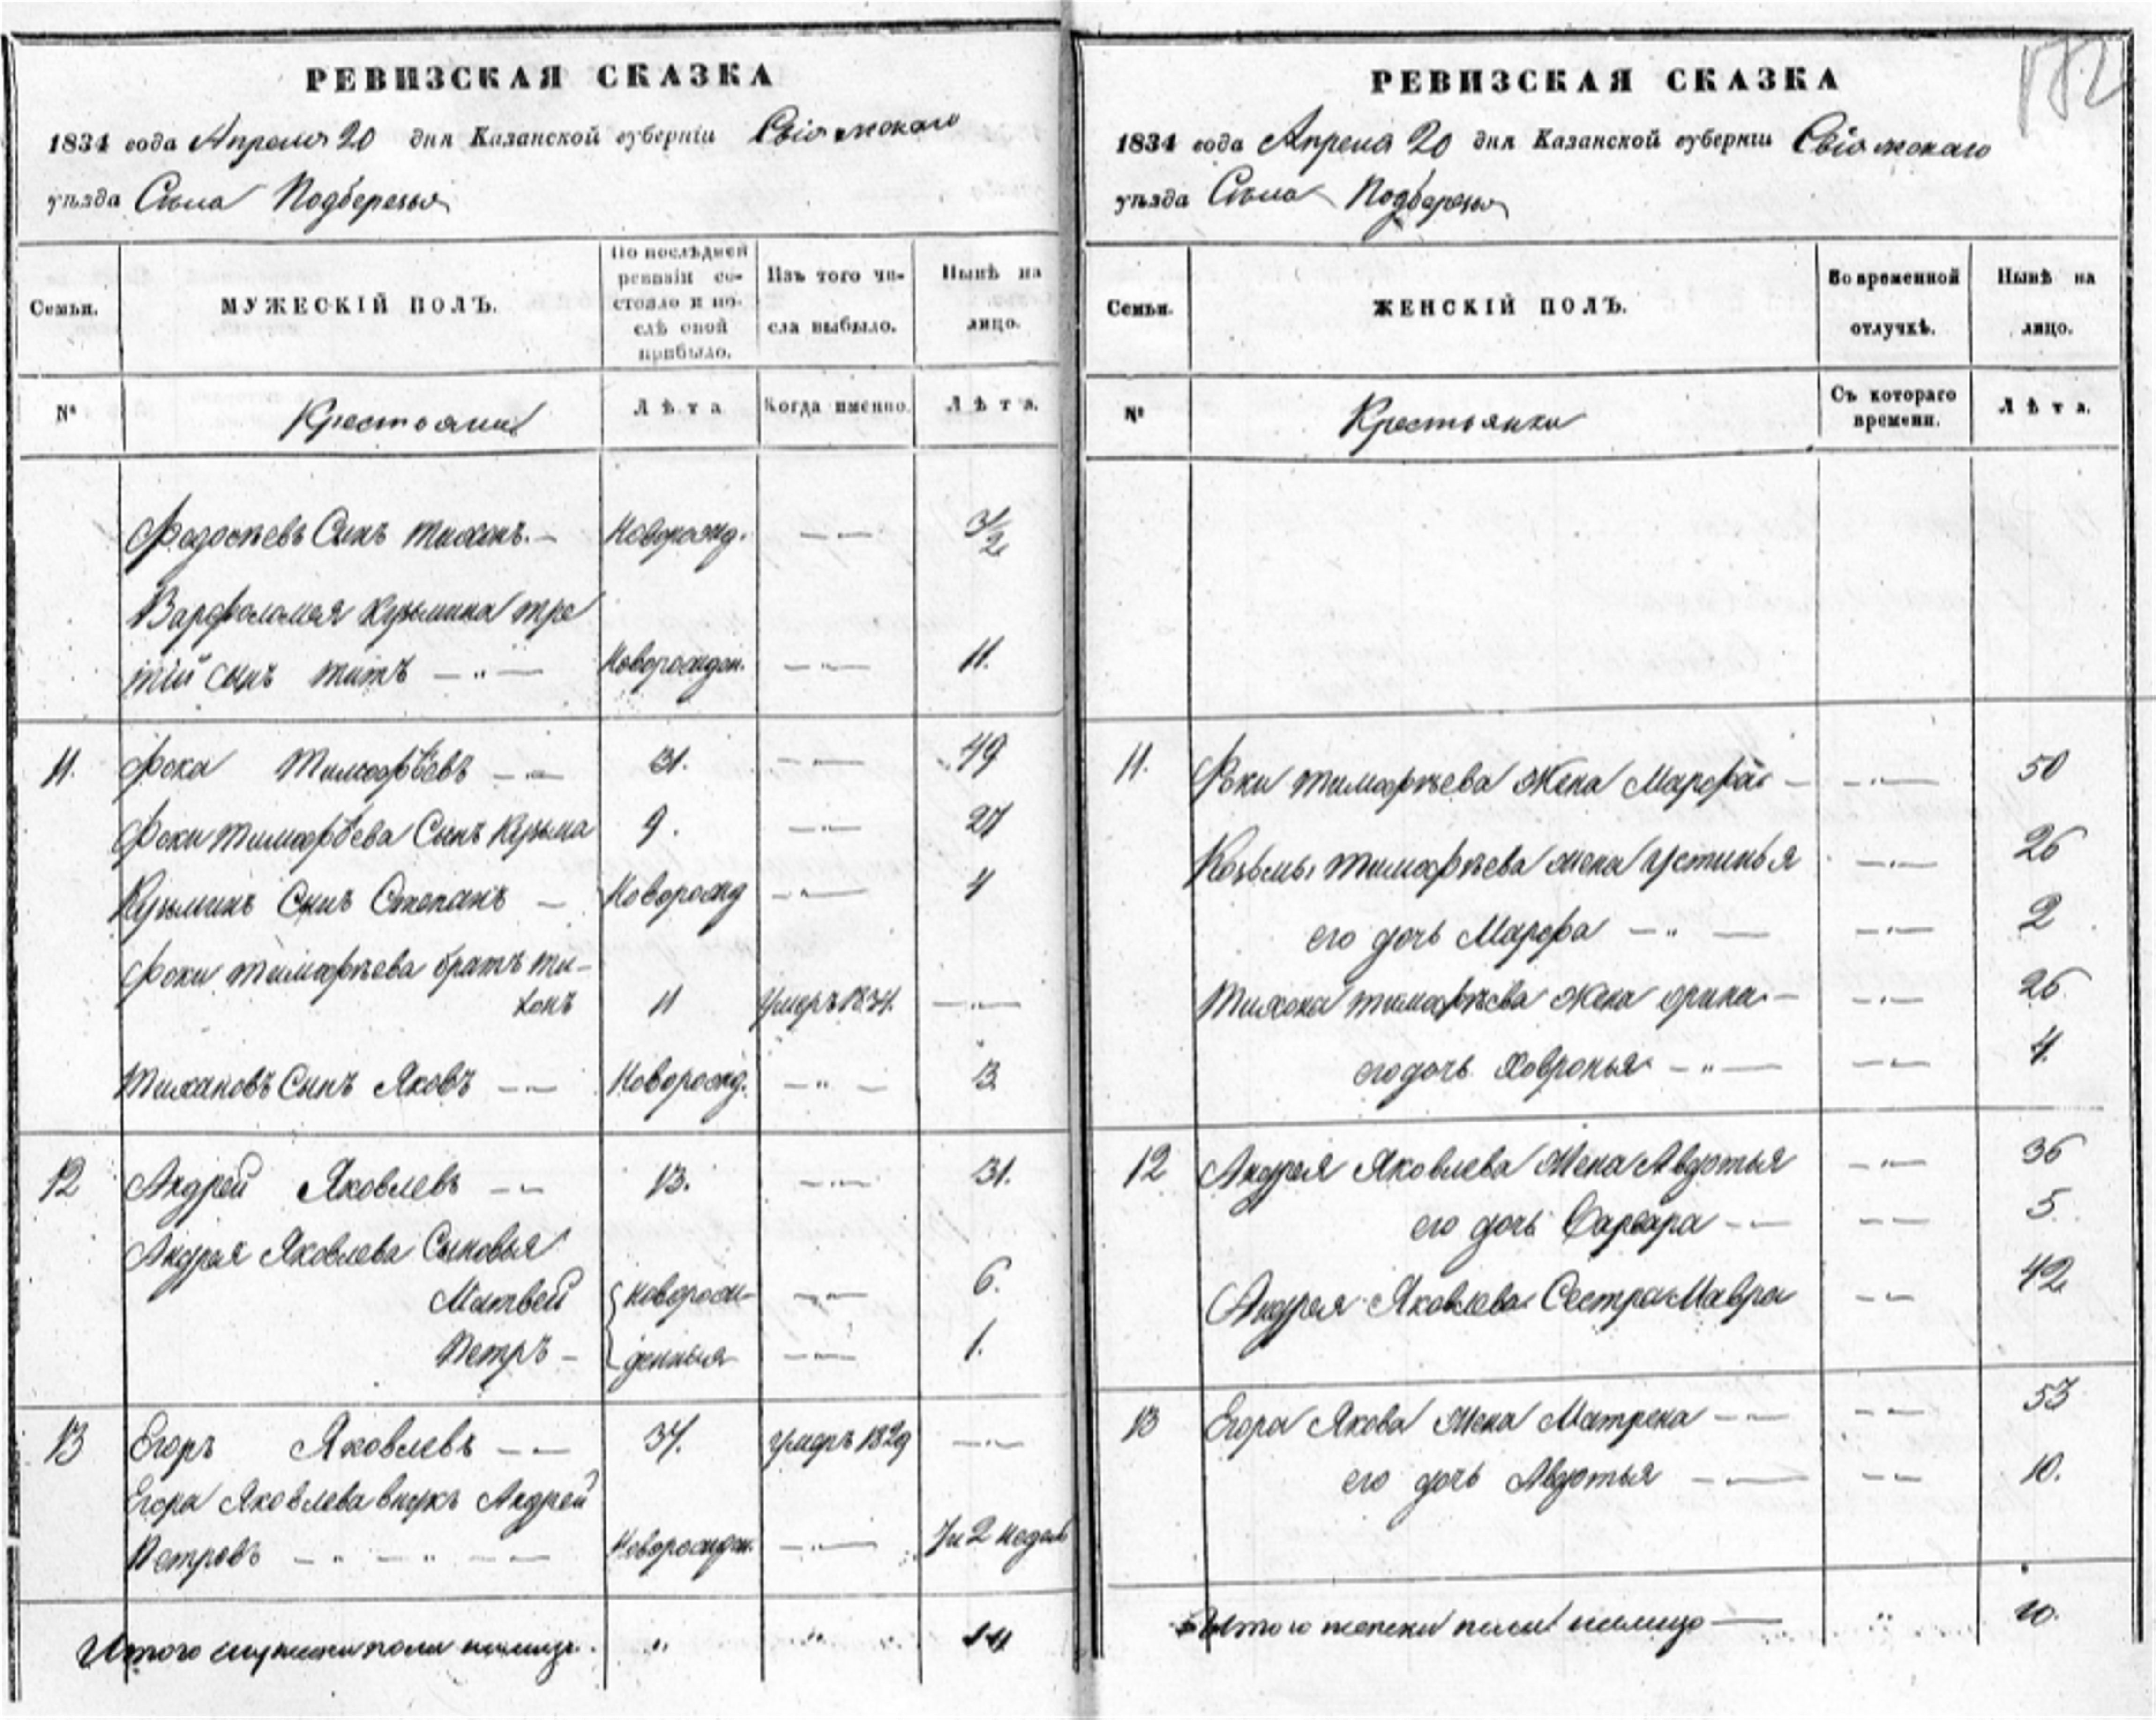 172
РЕВИЗСКАЯ СКАЗКА
1834 года Апреля 20 дня Казанской губерніи Свіяжскаго
уѣзда Села Подберезья
Семьи.
МУЖЕСКІЙ ПОЛЪ.
По послѣдней ревизіи состояло и послѣ оной прибыло.
Изъ того числа выбыло.
Нынѣ на лицо.
№
Крестьяне
Лѣта
Когда именно.
Лѣта.
Федосѣевъ Сынъ Тихонъ. Новорожд. 1/2
Варфаламея Кузьмина тре
тій сынъ титъ Новорожден. 11.
11. Фока Тимофѣевъ 31. 49
Фоки тимофѣева Сынъ Кузьма 9. 27
Кузьминъ Сынъ Степанъ Новорожд 4
Фоки тимофѣева братъ ти-
хонъ 11 Умеръ 1834.
Тихановъ Сынъ Яковъ Новорожд. 3
12 Андрей Яковлевъ 13. 31.
Андрея Яковлева Сыновья
Матвей новорож- 6.
Петръ денныя 1.
13 Егоръ Яковлевъ 37. умеръ 1829
Егора Яковлева внукъ Андрей
Петровъ Новорожден. 7и 2 недель
Итого мужеска пола налицо. 14
РЕВИЗСКАЯ СКАЗКА
1834 года Апреля 20 дня Казанской губерніи Свіяжскаго
уѣзда Села Подберезья
Семьи.
ЖЕНСКІЙ ПОЛЪ.
Во временной отлучкѣ.
Нынѣ на лицо.
№
Крестьянки
Съ котораго времени.
Лѣта.
11. Фоки тимофѣева Жена Марфа 50
Козьмы тимофѣева жена Устинья 26
его дочь Марфа 2
Тихона тимофѣева Жена орина 26
его дочь Ховронья 4.
12 Андрея Яковлева Жена Авдотья 36
его дочь Варвара 5
Андрея Яковлева Сестра Мавра 42
13 Егора Якова Жена Матрена 53
его дочь Авдотья 10.
Итого женска пола налицо 10.